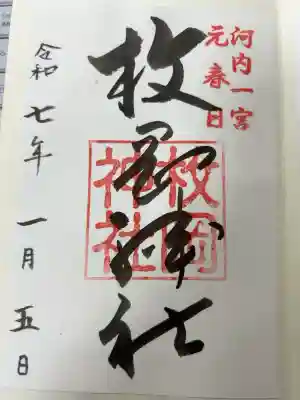 河内一宮
元春日
枚岡神社
枚岡
神社
令和七年一月五日